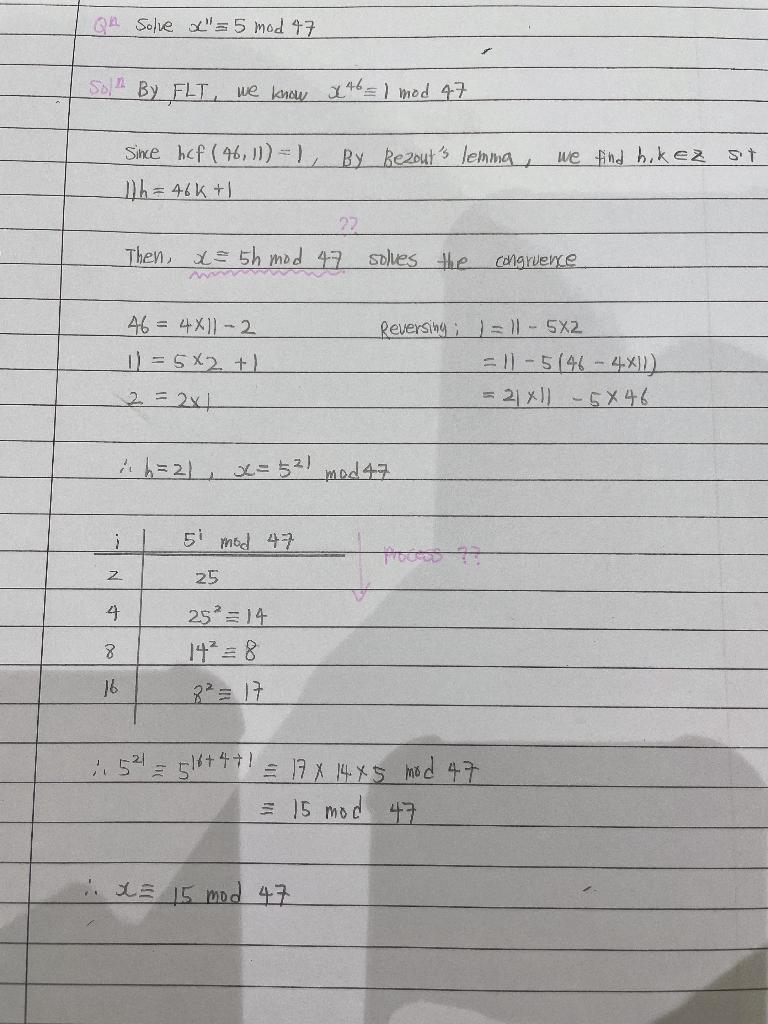 Qn Solve x¹¹ ≡ 5 mod 47
Solⁿ By FLT, we know x⁴⁶ ≡ 1 mod 47
Since hcf (46,11) = 1, By Bezout's lemma, we find h,k ∈ Z s.t
11h = 46k + 1
??
Then, x ≡ 5h mod 47 solves the congruence
46 = 4×11 - 2 Reversing; 1 = 11 - 5×2
11 = 5×2 + 1 = 11 - 5(46 - 4×11)
2 = 2×1 = 21×11 - 5×46
∴ h = 21, x = 5²¹ mod 47
i 5ⁱ mod 47 Process ??
2 25
4 25² ≡ 14
8 14² ≡ 8
16 8² ≡ 17
∴ 5²¹ ≡ 5¹⁶⁺⁴⁺¹ ≡ 17 × 14 × 5 mod 47
≡ 15 mod 47
∴ x ≡ 15 mod 47